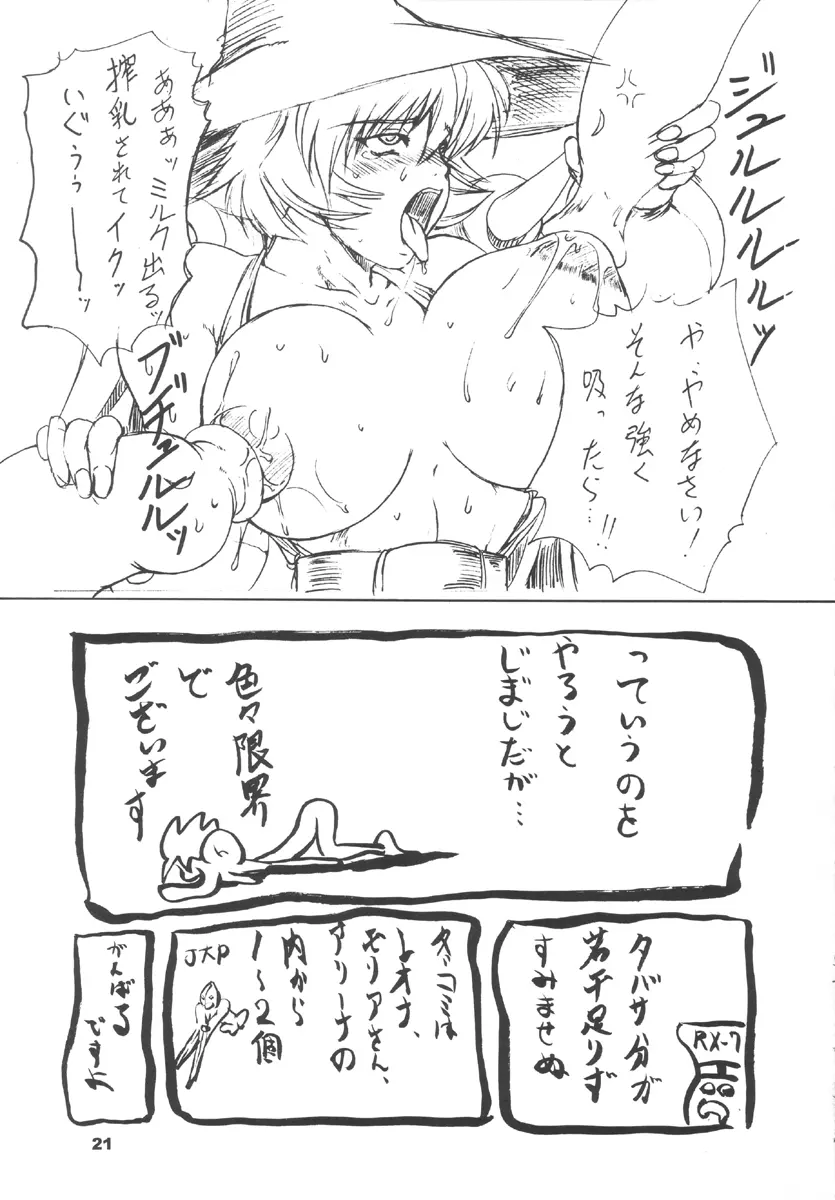 ジュルルルルルッ
や、やめなさい！
そんな強く
吸ったら…!!
ああぁッミルク出るッ
搾乳されてイクッ
いぐぅうぅーーッ
ブヂュルルルッ
っていうのを
やろうと
じまじだが…
色々限界
で
ございます
タバサ分が
若干足りず
すみませぬ
RX-7
冬コミは
レオナ、
モリアさん、
アリーナの
内から
1〜2個
がんばる
ですよ
21